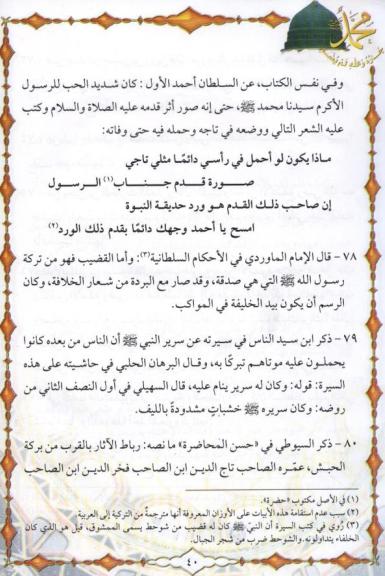 محمد ﷺ
وفي نفس الكتاب، عن السلطان أحمد الأول: كان شديد الحب للرسول
الأكرم سيدنا محمد ﷺ، حتى إنه صور أثر قدمه عليه الصلاة والسلام وكتب
عليه الشعر التالي ووضعه في تاجه وحمله فيه حتى وفاته:
ماذا يكون لو أحمل في رأسي دائمًا مثلي تاجي
صورة قدم جناب(١) الرسول
إن صاحب ذلك القدم هو ورد حديقة النبوة
امسح يا أحمد وجهك دائمًا بقدم ذلك الورد(٢)
٧٨ - قال الإمام الماوردي في الأحكام السلطانية(٣): وأما القضيب فهو من تركة
رسول الله ﷺ التي هي صدقة، وقد صار مع البردة من شعار الخلافة، وكان
الرسم أن يكون بيد الخليفة في المواكب.
٧٩ - ذكر ابن سيد الناس في سيرته عن سرير النبي ﷺ أن الناس من بعده كانوا
يحملون عليه موتاهم تبركًا به، وقال البرهان الحلبي في حاشيته على هذه
السيرة: قوله: وكان له سرير ينام عليه، قال السهيلي في أول النصف الثاني من
روضه: وكان سريره ﷺ خشباتٍ مشدودةً بالليف.
٨٠ - ذكر السيوطي في «حسن المحاضرة» ما نصه: رباط الآثار بالقرب من بركة
الحبش، عمّره الصاحب تاج الدين ابن الصاحب فخر الدين ابن الصاحب
(١) في الأصل مكتوب «حضرة».
(٢) سبب عدم استقامة هذه الأبيات على الأوزان المعروفة أنها مترجمةٌ من التركية إلى العربية.
(٣) رُوي في كتب السيرة أن النبيّ ﷺ كان له قضيب من شوحط يسمى الممشوق، قيل هو الذي كان
الخلفاء يتداولونه. والشوحط ضرب من شجر الجبال.
٤٠